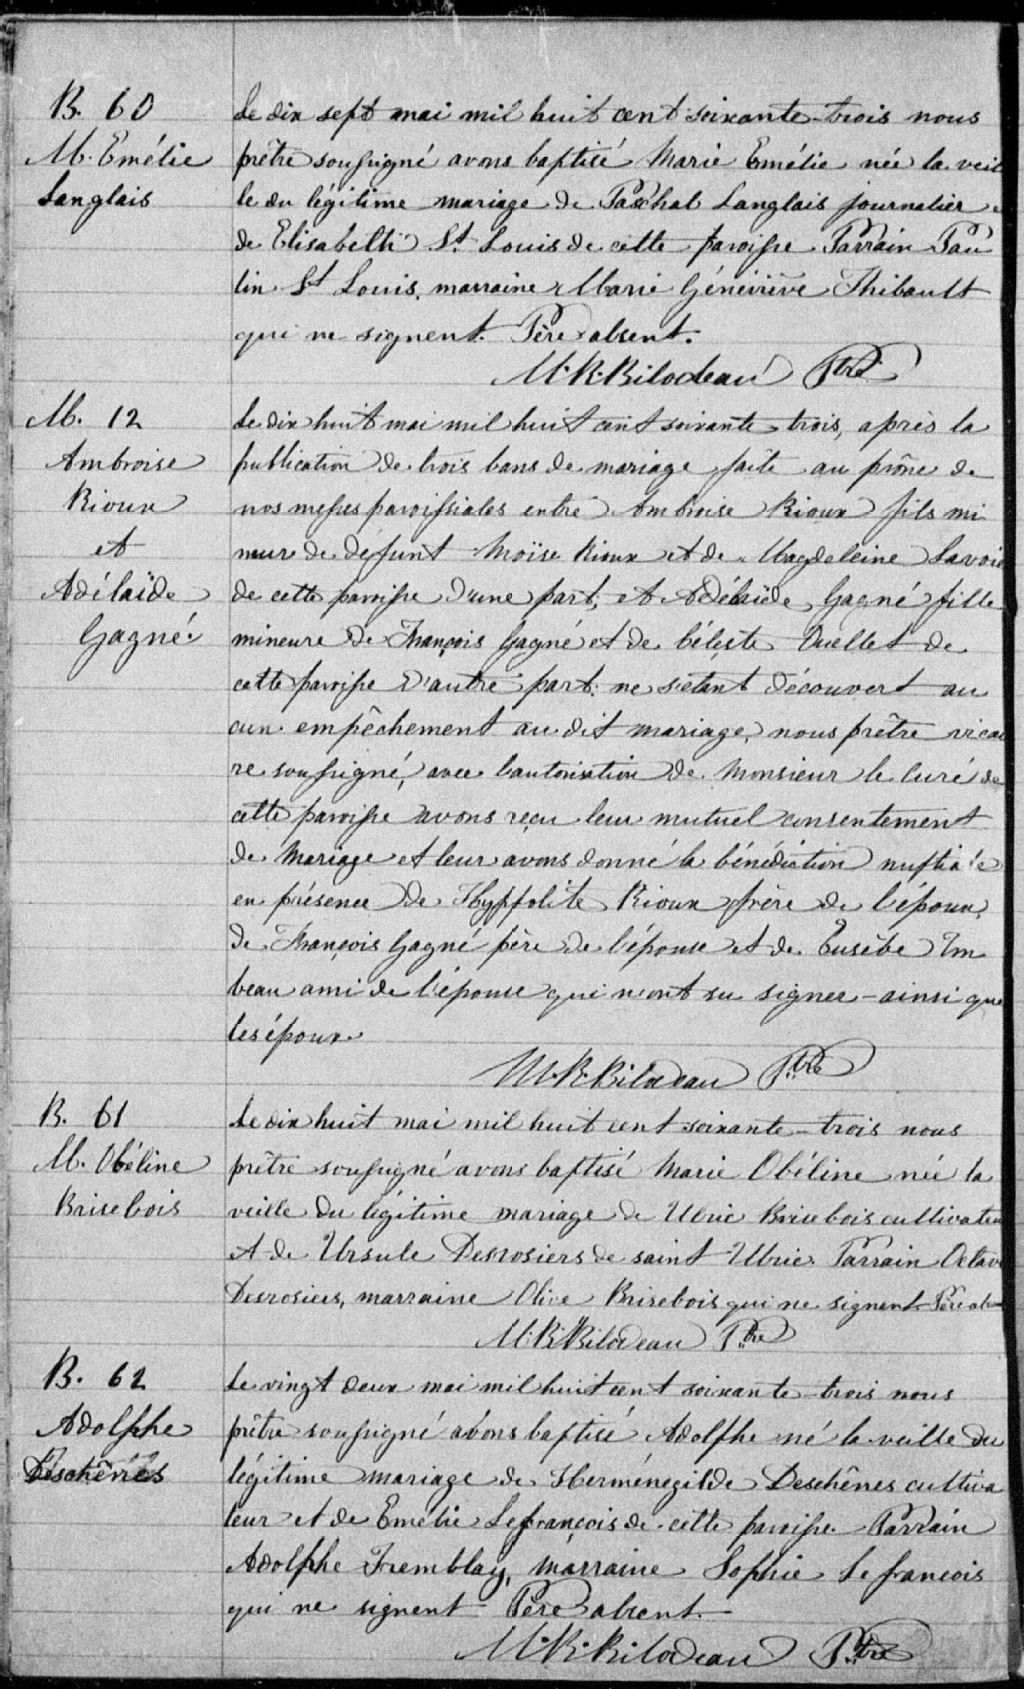 B. 60
M. Emélie
Langlais
Le dix sept mai mil huit cent soixante-trois nous
prêtre soussigné avons baptisé Marie Emélie née la veil
le du légitime mariage de Paschal Langlais journalier
de Elisabeth St Louis de cette paroisse Parrain Pau
lin St Louis, marraine Marie Géneviève Thibault
qui ne signent. Père absent.
M. R. Bilodeau Ptre
M. 12
Ambroise
Rioux
et
Adélaïde
Gagné
Le dix huit mai mil huit cent soixante trois, après la
publication de trois bans de mariage faite au prône de
nos messes paroissiales entre Ambroise Rioux fils mi
neur de defunt Moïse Rioux et de Magdeleine Lavoie
de cette paroisse d'une part, et Adélaïde Gagné fille
mineure de François Gagné et de Céleste Ouellet de
cette paroisse d'autre part: ne s'étant découvert au
cun empêchement au dit mariage, nous prêtre vicai
re soussigné, avec l'autorisation de Monsieur le Curé de
cette paroisse avons reçu leur mutuel consentement
de mariage et leur avons donné la bénédiction nuptiale
en présence de Hyppolite Rioux frère de l'époux,
de François Gagné père de l'épouse et de Eusèbe Im
beau ami de l'épouse qui n'ont su signer - ainsi que
les époux.
M. R. Bilodeau Ptre
B. 61
M. Obéline
Brisebois
Le dix huit mai mil huit cent soixante-trois nous
prêtre soussigné avons baptisé Marie Obéline née la
veille du légitime mariage de Ulric Brisebois cultivateur
et de Ursule Desrosiers de saint Ulric. Parrain Octave
Desrosiers, marraine Olive Brisebois qui ne signent Père absent
M. R. Bilodeau Ptre
B. 62
Adolphe
Deschênes
Le vingt deux mai mil huit cent soixante-trois nous
prêtre soussigné avons baptisé Adolphe né la veille du
légitime mariage de Herménegilde Deschênes cultiva
teur et de Emélie Lefrançois de cette paroisse. Parrain
Adolphe Tremblay, marraine Sophie Lefrancois
qui ne signent Père absent.-
M. R. Bilodeau Ptre